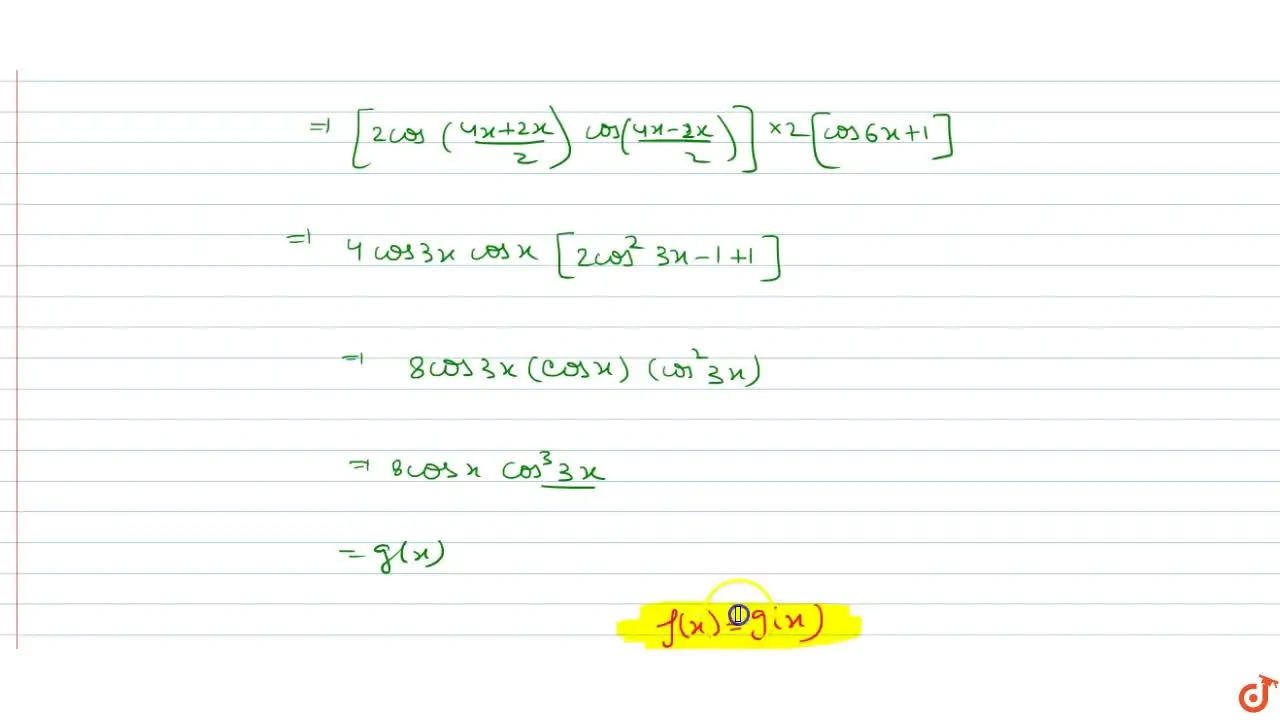 ⇒ [2cos (4x+2x/2) cos(4x-2x/2)] ×2 [cos6x+1]
⇒ 4 cos3x cosx [2cos² 3x-1+1]
⇒ 8cos3x(cosx) (cos² 3x)
⇒ 8cosx cos³ 3x
= g(x)
f(x) = g(x)